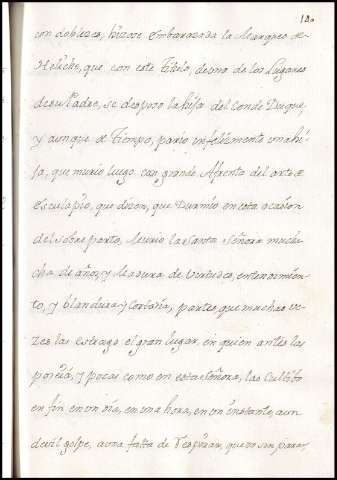 180
con doblezes, hizose embarazada la Marquesa de
Heliche, que con este Titulo, de uno de los Lugares
de su Padre, se desposo la hija del Conde Duque,
y aunque de Tiempo, pario infelizmente una hi-
ja, que murio luego con grande Afrenta del arte de
Esculapio, que dizen, que Durmio en esta ocasion
del sobre parto, Murio la Santa Señora muchi-
cha de años, y Madura de Virtudes, entendimien-
to, y blandura, y Cortesia, partes, que muchas ve-
zes las estrago el gran lugar, en quien antes las
poseîa, y pocas como en esta señora, las Cultibo
en fin en un dia, en una hora, en un instante, a un
devil golpe, a una falta de respirar,